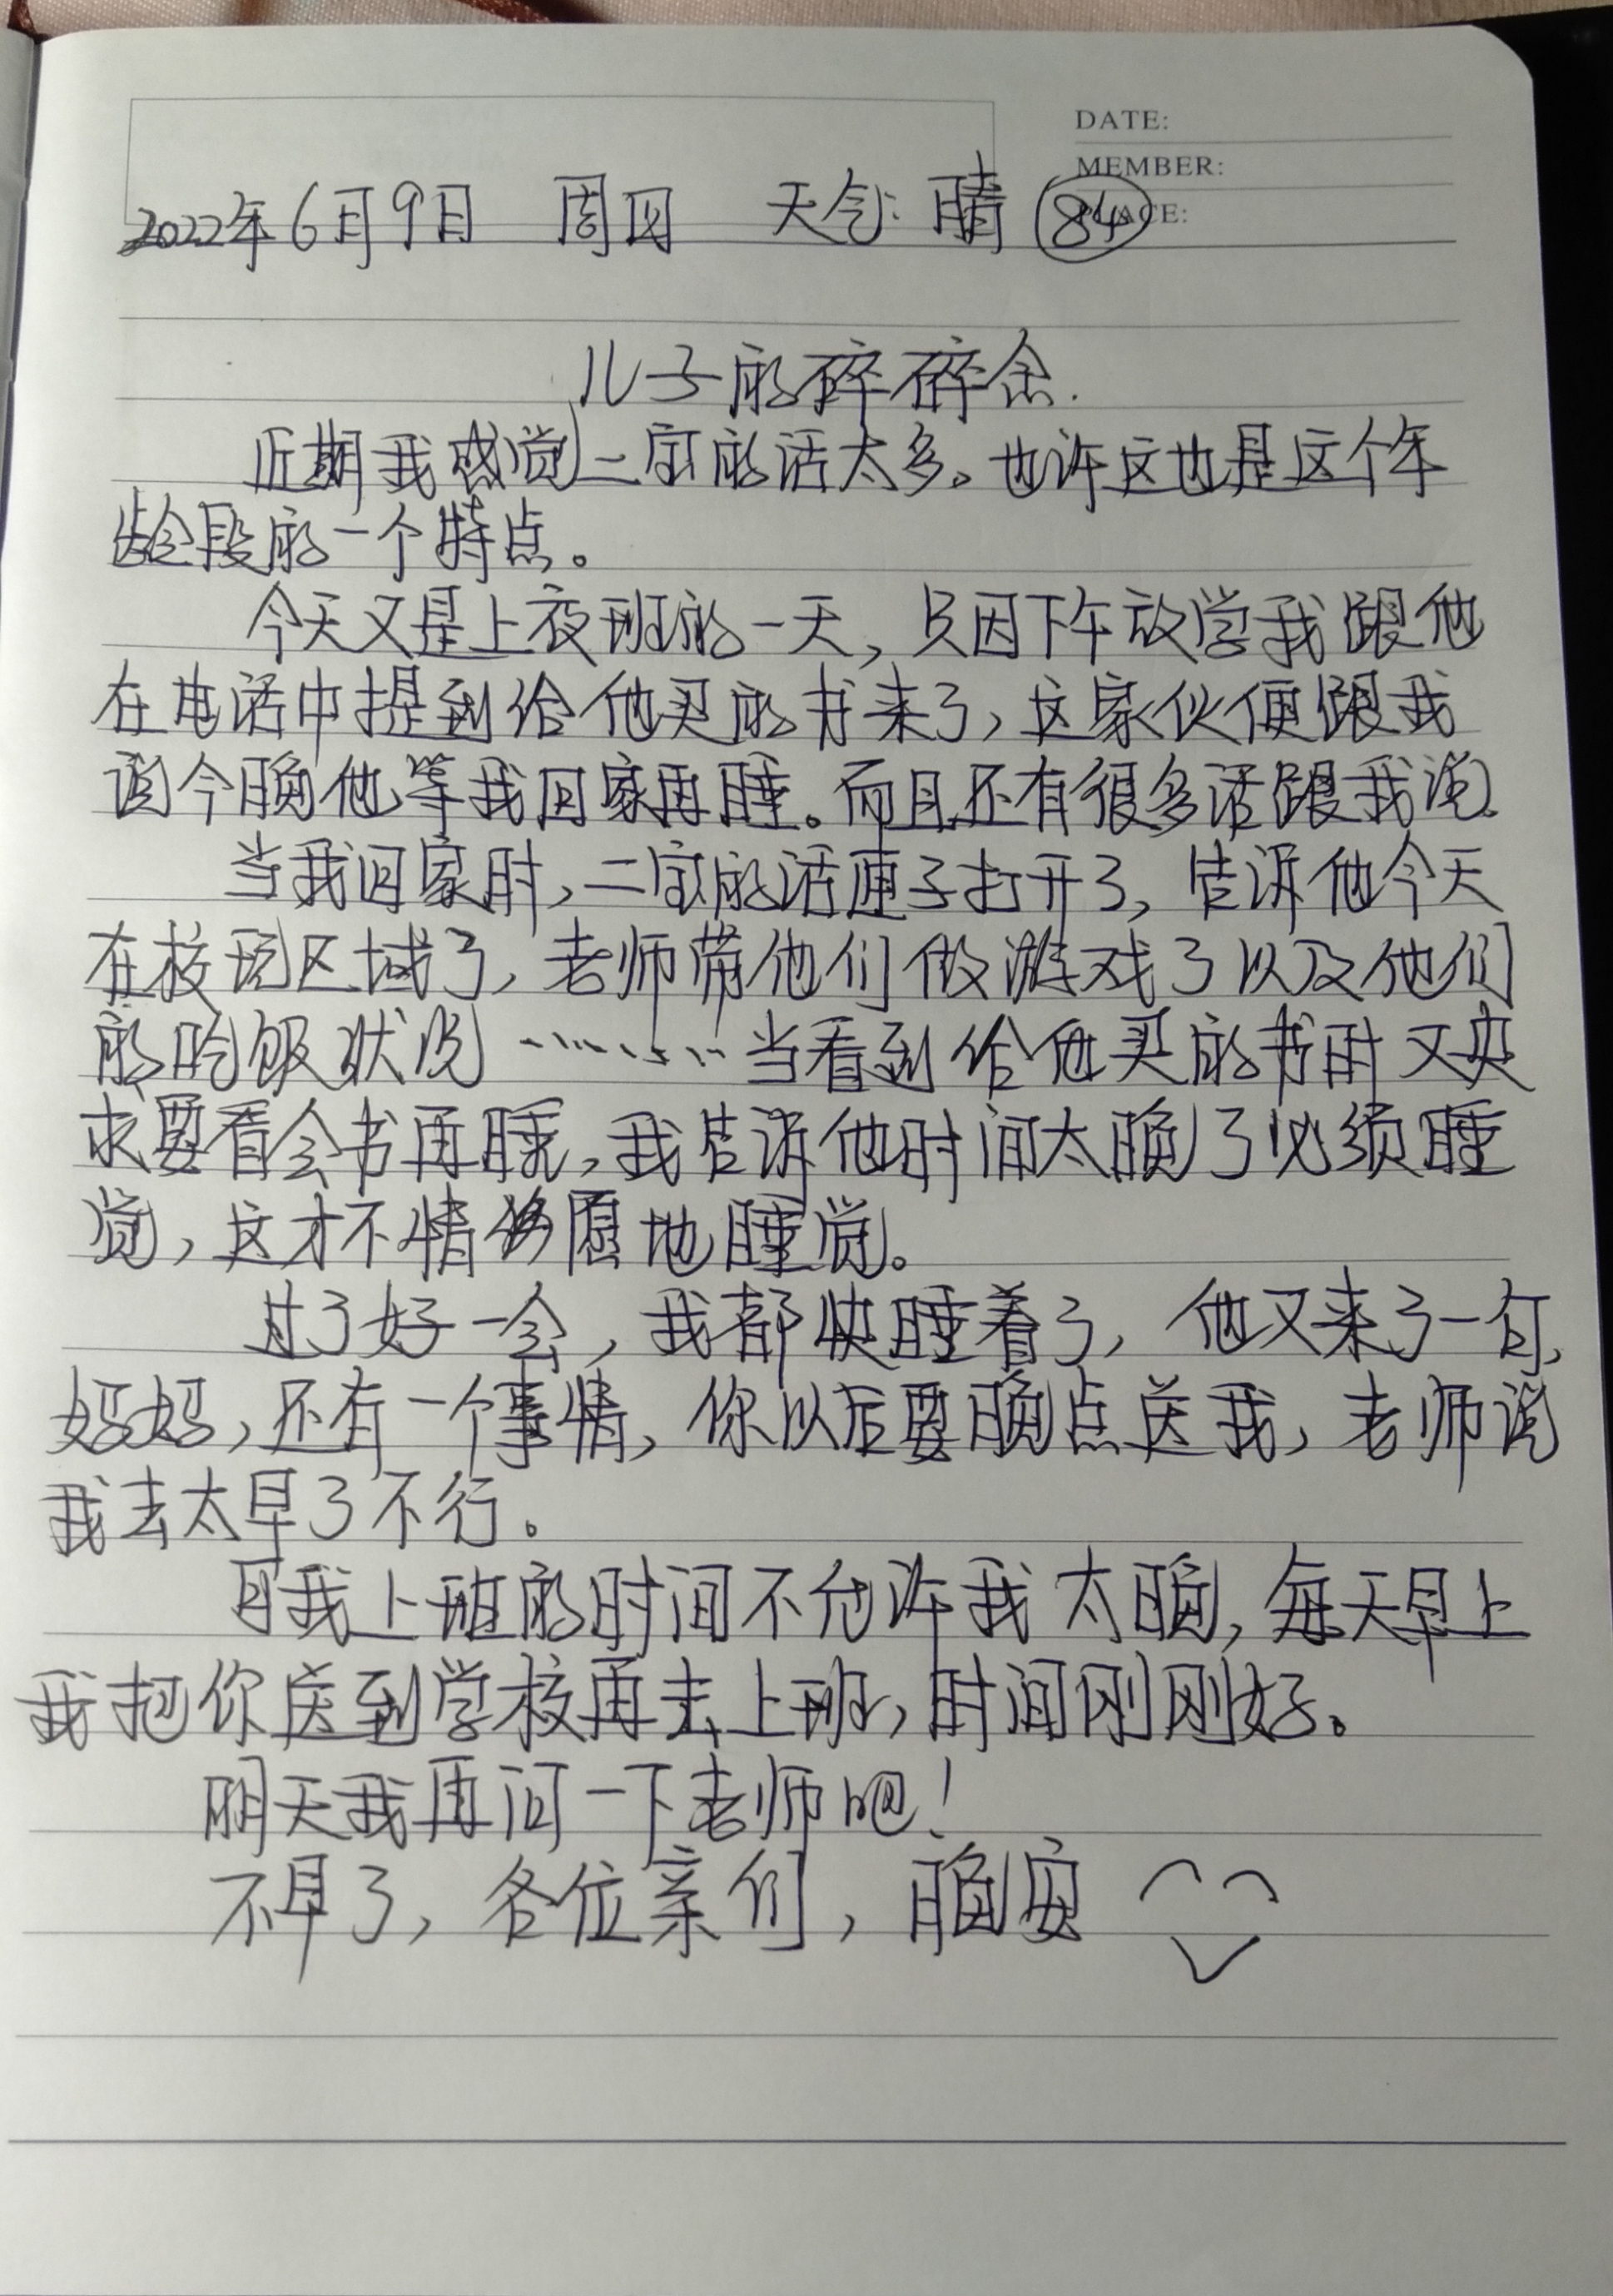 DATE:
MEMBER:
PLACE:
2022年6月9日 周四 天气:晴 84
儿子的碎碎念.
近期我感觉二宝的话太多。也许这也是这个年
龄段的一个特点。
今天又是上夜班的一天,只因下午放学我跟他
在电话中提到给他买的书来了,这家伙便跟我
说今晚他等我回家再睡。而且还有很多话跟我说.
当我回家时,二宝的话匣子打开了,告诉他今天
在校玩区域了,老师带他们做游戏了以及他们
的吃饭状况…………当看到给他买的书时又央
求要看会书再睡,我告诉他时间太晚了必须睡
觉,这才不情愿地睡觉。
过了好一会,我都快睡着了,他又来了一句,
妈妈,还有一个事情,你以后要晚点送我,老师说
我去太早了不行。
我上班的时间不允许我太晚,每天早上
我把你送到学校再去上班,时间刚刚好。
明天我再问一下老师吧!
不早了,各位亲们,晚安